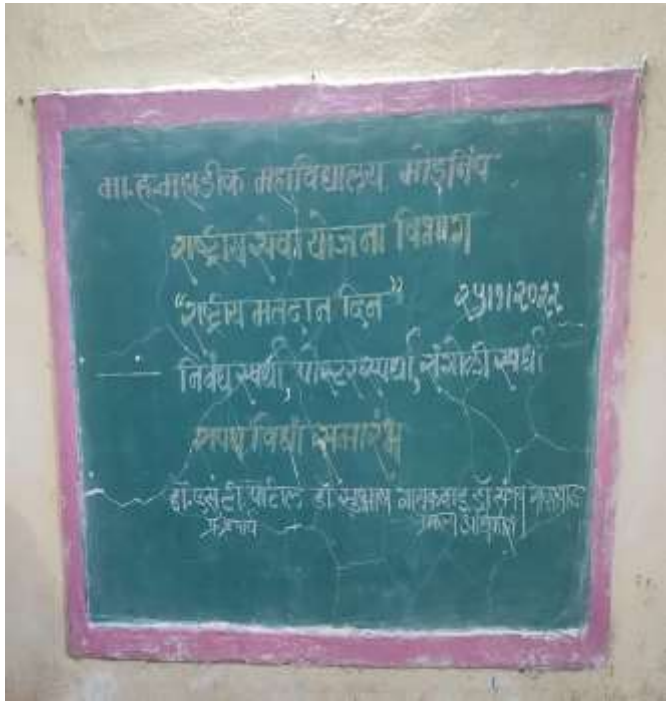 मा.ह.महाडीक महाविद्यालय मोडनिंब
राष्ट्रीय सेवा योजना विभाग
"राष्ट्रीय मतदान दिन" २५।१।२०२२
निबंध स्पर्धा, पोस्टर स्पर्धा, रांगोळी स्पर्धा
शपथ विधी समारंभ
डॉ. एस.टी पाटील डॉ. सुभाष गायकवाड डॉ